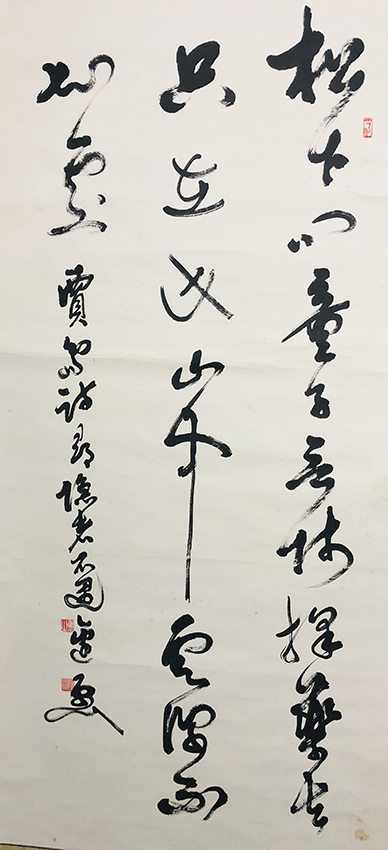 松下問童子言師採藥去
只在此山中雲深不
知處
賈島詩尋隱者不遇